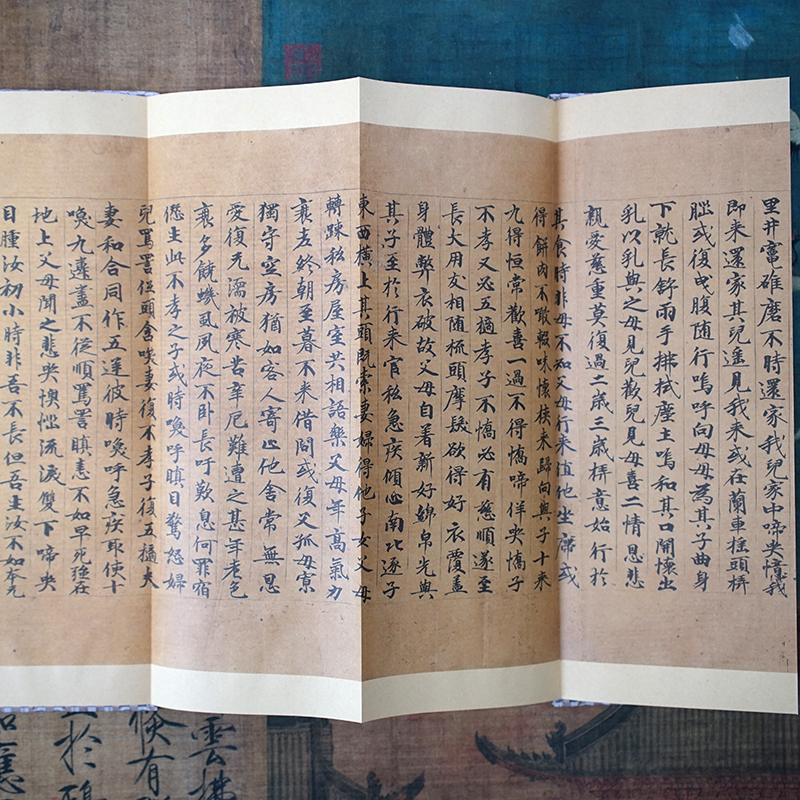 里井竈磑磨不時還家我兒家中啼哭憶我
即来還家其兒遥見我来或在蘭車搖頭弄
腦或復曳腹随行嗚呼向母母為其子曲身
下就長舒兩手拂拭塵土嗚和其口開懷出
乳以乳與之母見兒歡兒見母喜二情恩悲
親愛慈重莫復過二歲三歲弄意始行於
其食時非母不知父母行来值他坐席或
得餅肉不噉輟味懷挾来歸向與子十来
九得恒常歡喜一過不得憍啼佯哭憍子
不孝又必五擿孝子不憍必有慈順遂至
長大朋友相随梳頭摩髮欲得好衣覆蓋
身體弊衣破故父母自着新好綿帛先與
其子至於行来官私急疾傾心南北逐子
東西橫上其頭既索妻婦得他子女父母
轉踈私房屋室共相語樂父母年高氣力
衰老終朝至暮不来借問或復父孤母寡
獨守空房猶如客人寄止他舍常無恩
愛復无濡被寒苦辛厄難遭之甚年老色
衰多饒蟣虱夙夜不卧長吁歎息何罪宿
愆生此不孝之子或時喚呼瞋目驚怒婦
兒罵詈低頭含咲妻復不孝子復五擿夫
妻和合同作五逆彼時喚呼急疾取使十
喚九違盡不從順罵詈瞋恚不如早死强在
地上父母聞之悲哭懊惱流淚雙下啼哭
目腫汝初小時非吾不長但吾生汝不如本无
雲拂
倏有
於